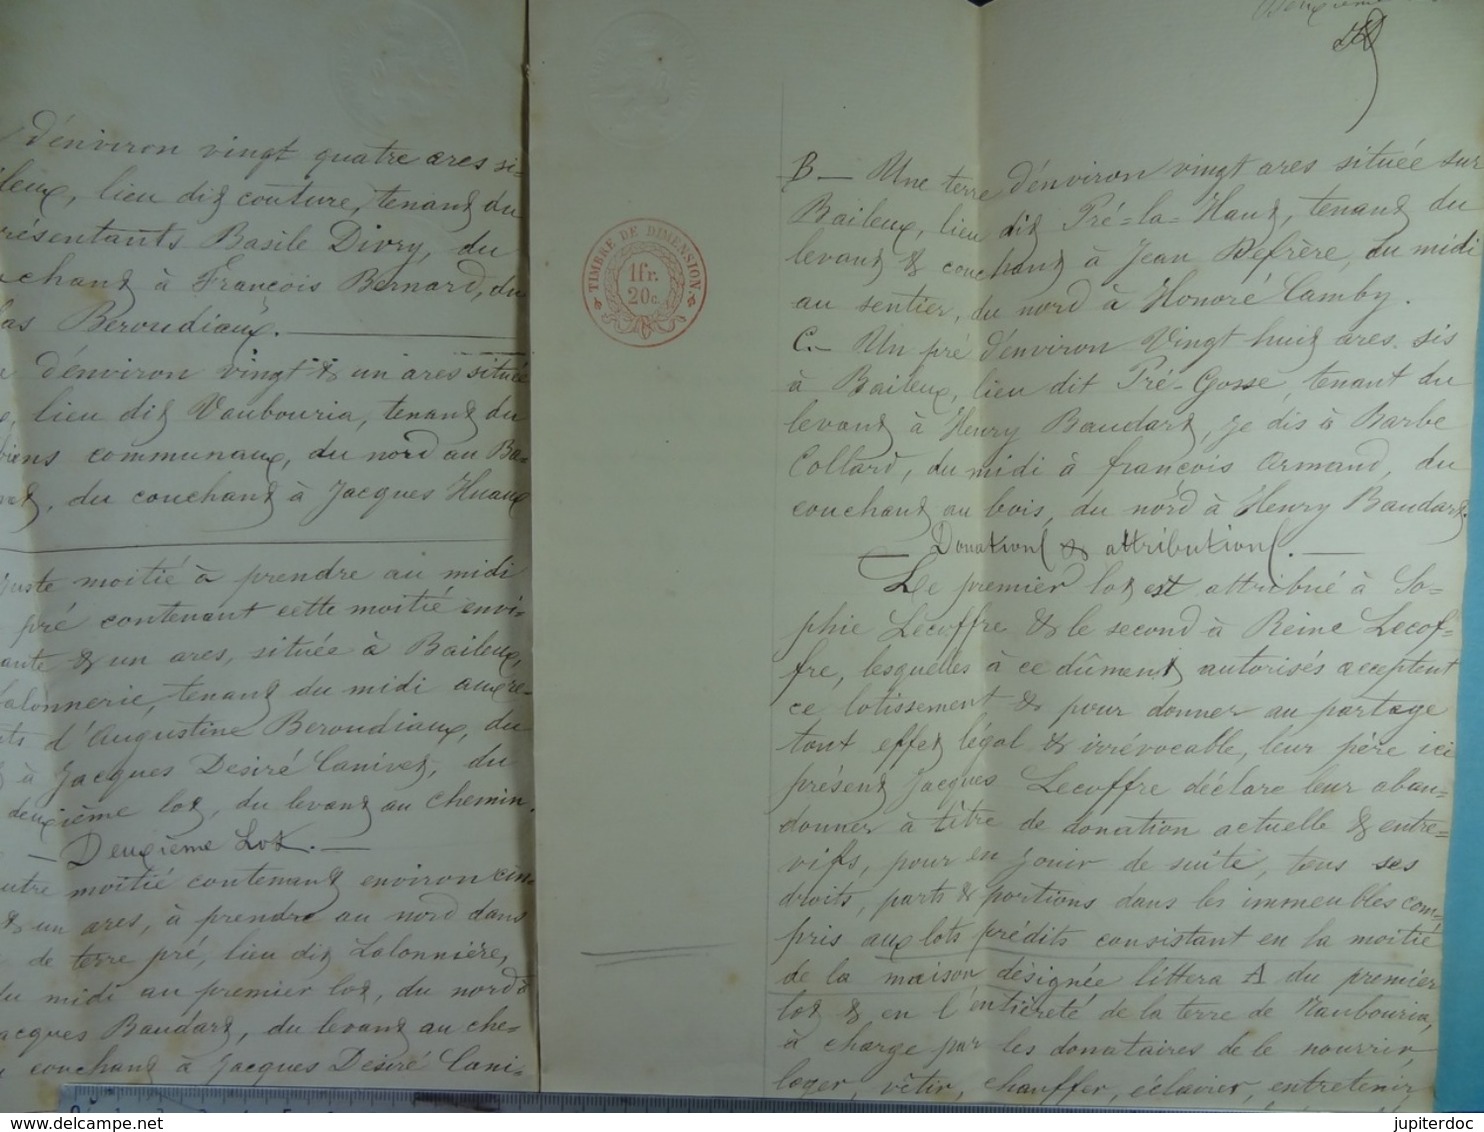 d'environ vingt quatre ares si-
leux, lieu dit couture, tenant du
résentants Basile Divry, du
chant à François Bernard, du
las Beroudiaux.
d'environ vingt & un ares située
lieu dit Vaubouria, tenant du
biens communaux, du nord au Ba-
du couchant à Jacques Huaux
juste moitié à prendre au midi
pré contenant cette moitié envi-
ante & un ares, située à Baileux,
lalonnerie, tenant du midi aux re-
ts d'Augustine Beroudiaux, du
à Jacques Desiré Canivet, du
deuxième lot, du levant au chemin.
— Deuxième Lot. —
utre moitié contenant environ cin-
& un ares, à prendre au nord dans
de terre pré, lieu dit Lalonnière,
du midi au premier lot, du nord à
acques Baudart, du levant au che-
couchant à Jacques Désiré Cani-
TIMBRE DE DIMENSION
1fr.
20c.
Deuxième
B — Une terre d'environ vingt ares située sur
Baileux, lieu dit Pré-la-Haut, tenant du
levant & couchant à Jean Defrère, du midi
au sentier, du nord à Honoré Camby.
C. — Un pré d'environ Vingt huit ares sis
à Baileux, lieu dit Pré-Gosse, tenant du
levant à Henry Baudart, je dis à Barbe
Collard, du midi à françois Armand, du
couchant au bois, du nord à Henry Baudart.
— Donation & attribution. —
Le premier lot est attribué à So-
phie Lecoffre & le second à Reine Lecof-
fre, lesquelles à ce dûment autorisés acceptent
ce lotissement & pour donner au partage
tout effet légal & irrévocable, leur père ici
présent Jacques Lecoffre déclare leur aban-
donner à titre de donation actuelle & entre-
vifs, pour en jouir de suite, tous ses
droits, parts & portions dans les immeubles com-
pris aux lots prédits consistant en la moitié
de la maison désignée littera A du premier
lot & en l'entièreté de la terre de Vaubouria,
à charge par les donataires de le nourrir,
loger, vêtir, chauffer, éclairer, entretenir
www.delcampe.net
jupiterdoc